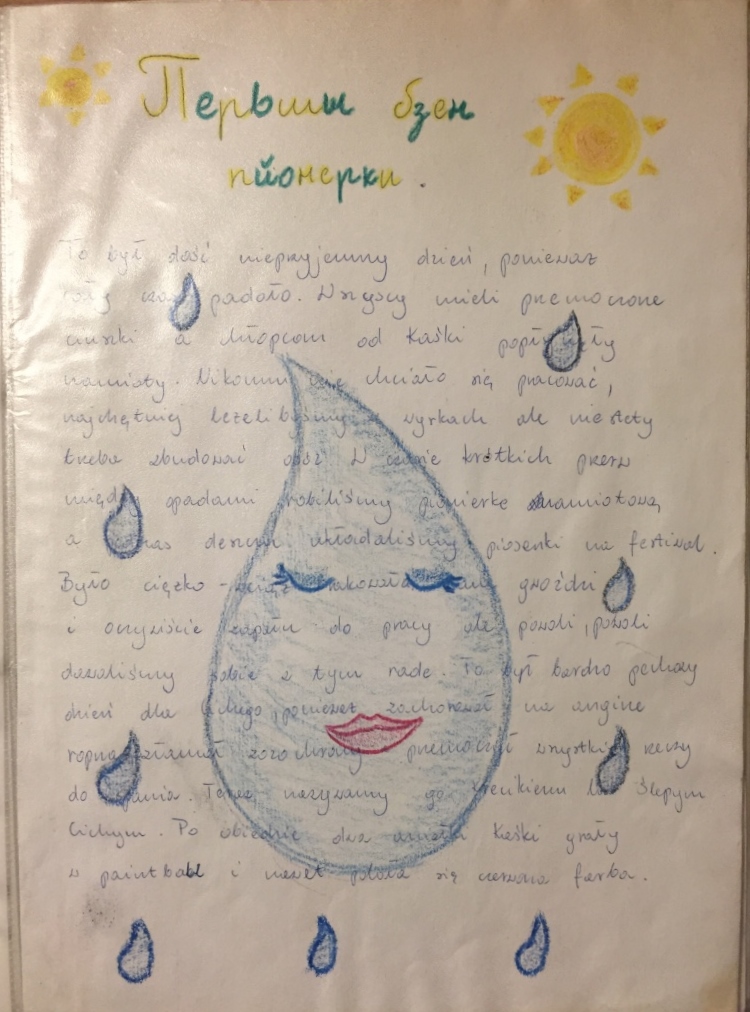 Первши дзен
пйонерки.
To był dość nieprzyjemny dzień, ponieważ
cały czas padało. Wszyscy mieli przemoczone
ciuszki a chłopcom od Kaśki popłynęły
namioty. Nikomu nie chciało się pracować,
najchętniej leżelibyśmy w wyrkach ale niestety
trzeba zbudować obóz. W czasie krótkich przerw
między opadami robiliśmy pionierkę namiotową,
a podczas deszczu układaliśmy piosenki na festiwal.
Było ciężko - wciąż brakowało nam gwoździ
i oczywiście zapału do pracy ale powoli, powoli
dawaliśmy sobie z tym radę. To był bardzo pechowy
dzień dla ponieważ zachorował na anginę
ropną, złamał i przemoczył wszystkie rzeczy
do spania. Teraz nazywamy go lub Ślepym
Cichym. Po obiedzie dwa Kaśki grały
w paintball i nawet polała się czerwona farba.